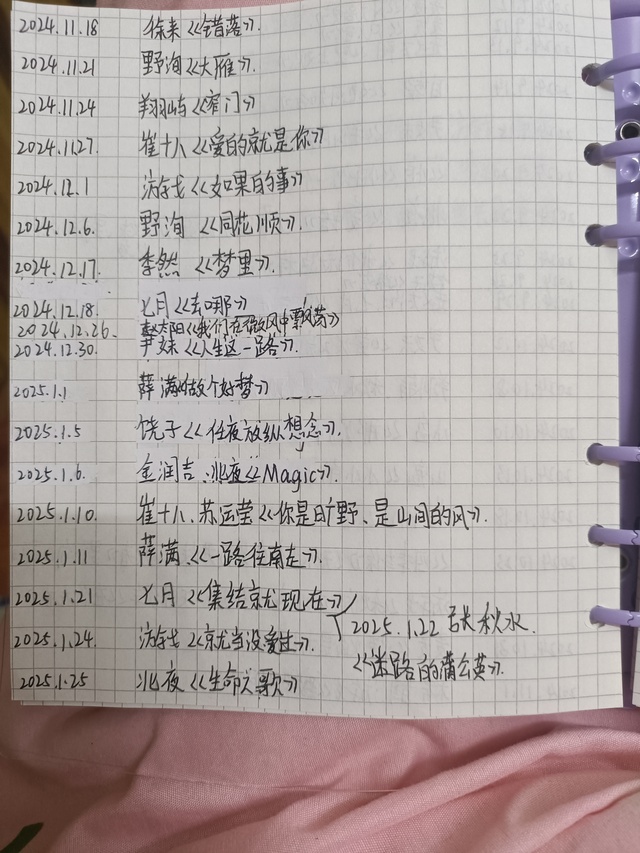 2024.11.18 徐来《错落》.
2024.11.21 野洵《大雁》.
2024.11.24 翔屿《窄门》
2024.11.27. 崔十八《爱的就是你》
2024.12.1 游戋《如果的事》
2024.12.6. 野洵《同花顺》.
2024.12.17. 李然《梦里》.
2024.12.18. 七月《去哪》
2024.12.26. 赵太阳《我们在微风中飘荡》
2024.12.30. 尹姝《人生这一路》.
2025.1.1 薛满《做个好梦》
2025.1.5 饶子《任夜放纵想念》.
2025.1.6. 金润吉、兆夜《Magic》.
2025.1.10. 崔十八、苏运莹《你是旷野、是山间的风》.
2025.1.11 薛满《一路往南走》.
2025.1.21 七月《集结就现在》
2025.1.22 张秋水.
《迷路的蒲公英》.
2025.1.24. 游戋《就当没爱过》.
2025.1.25 兆夜《生命之歌》